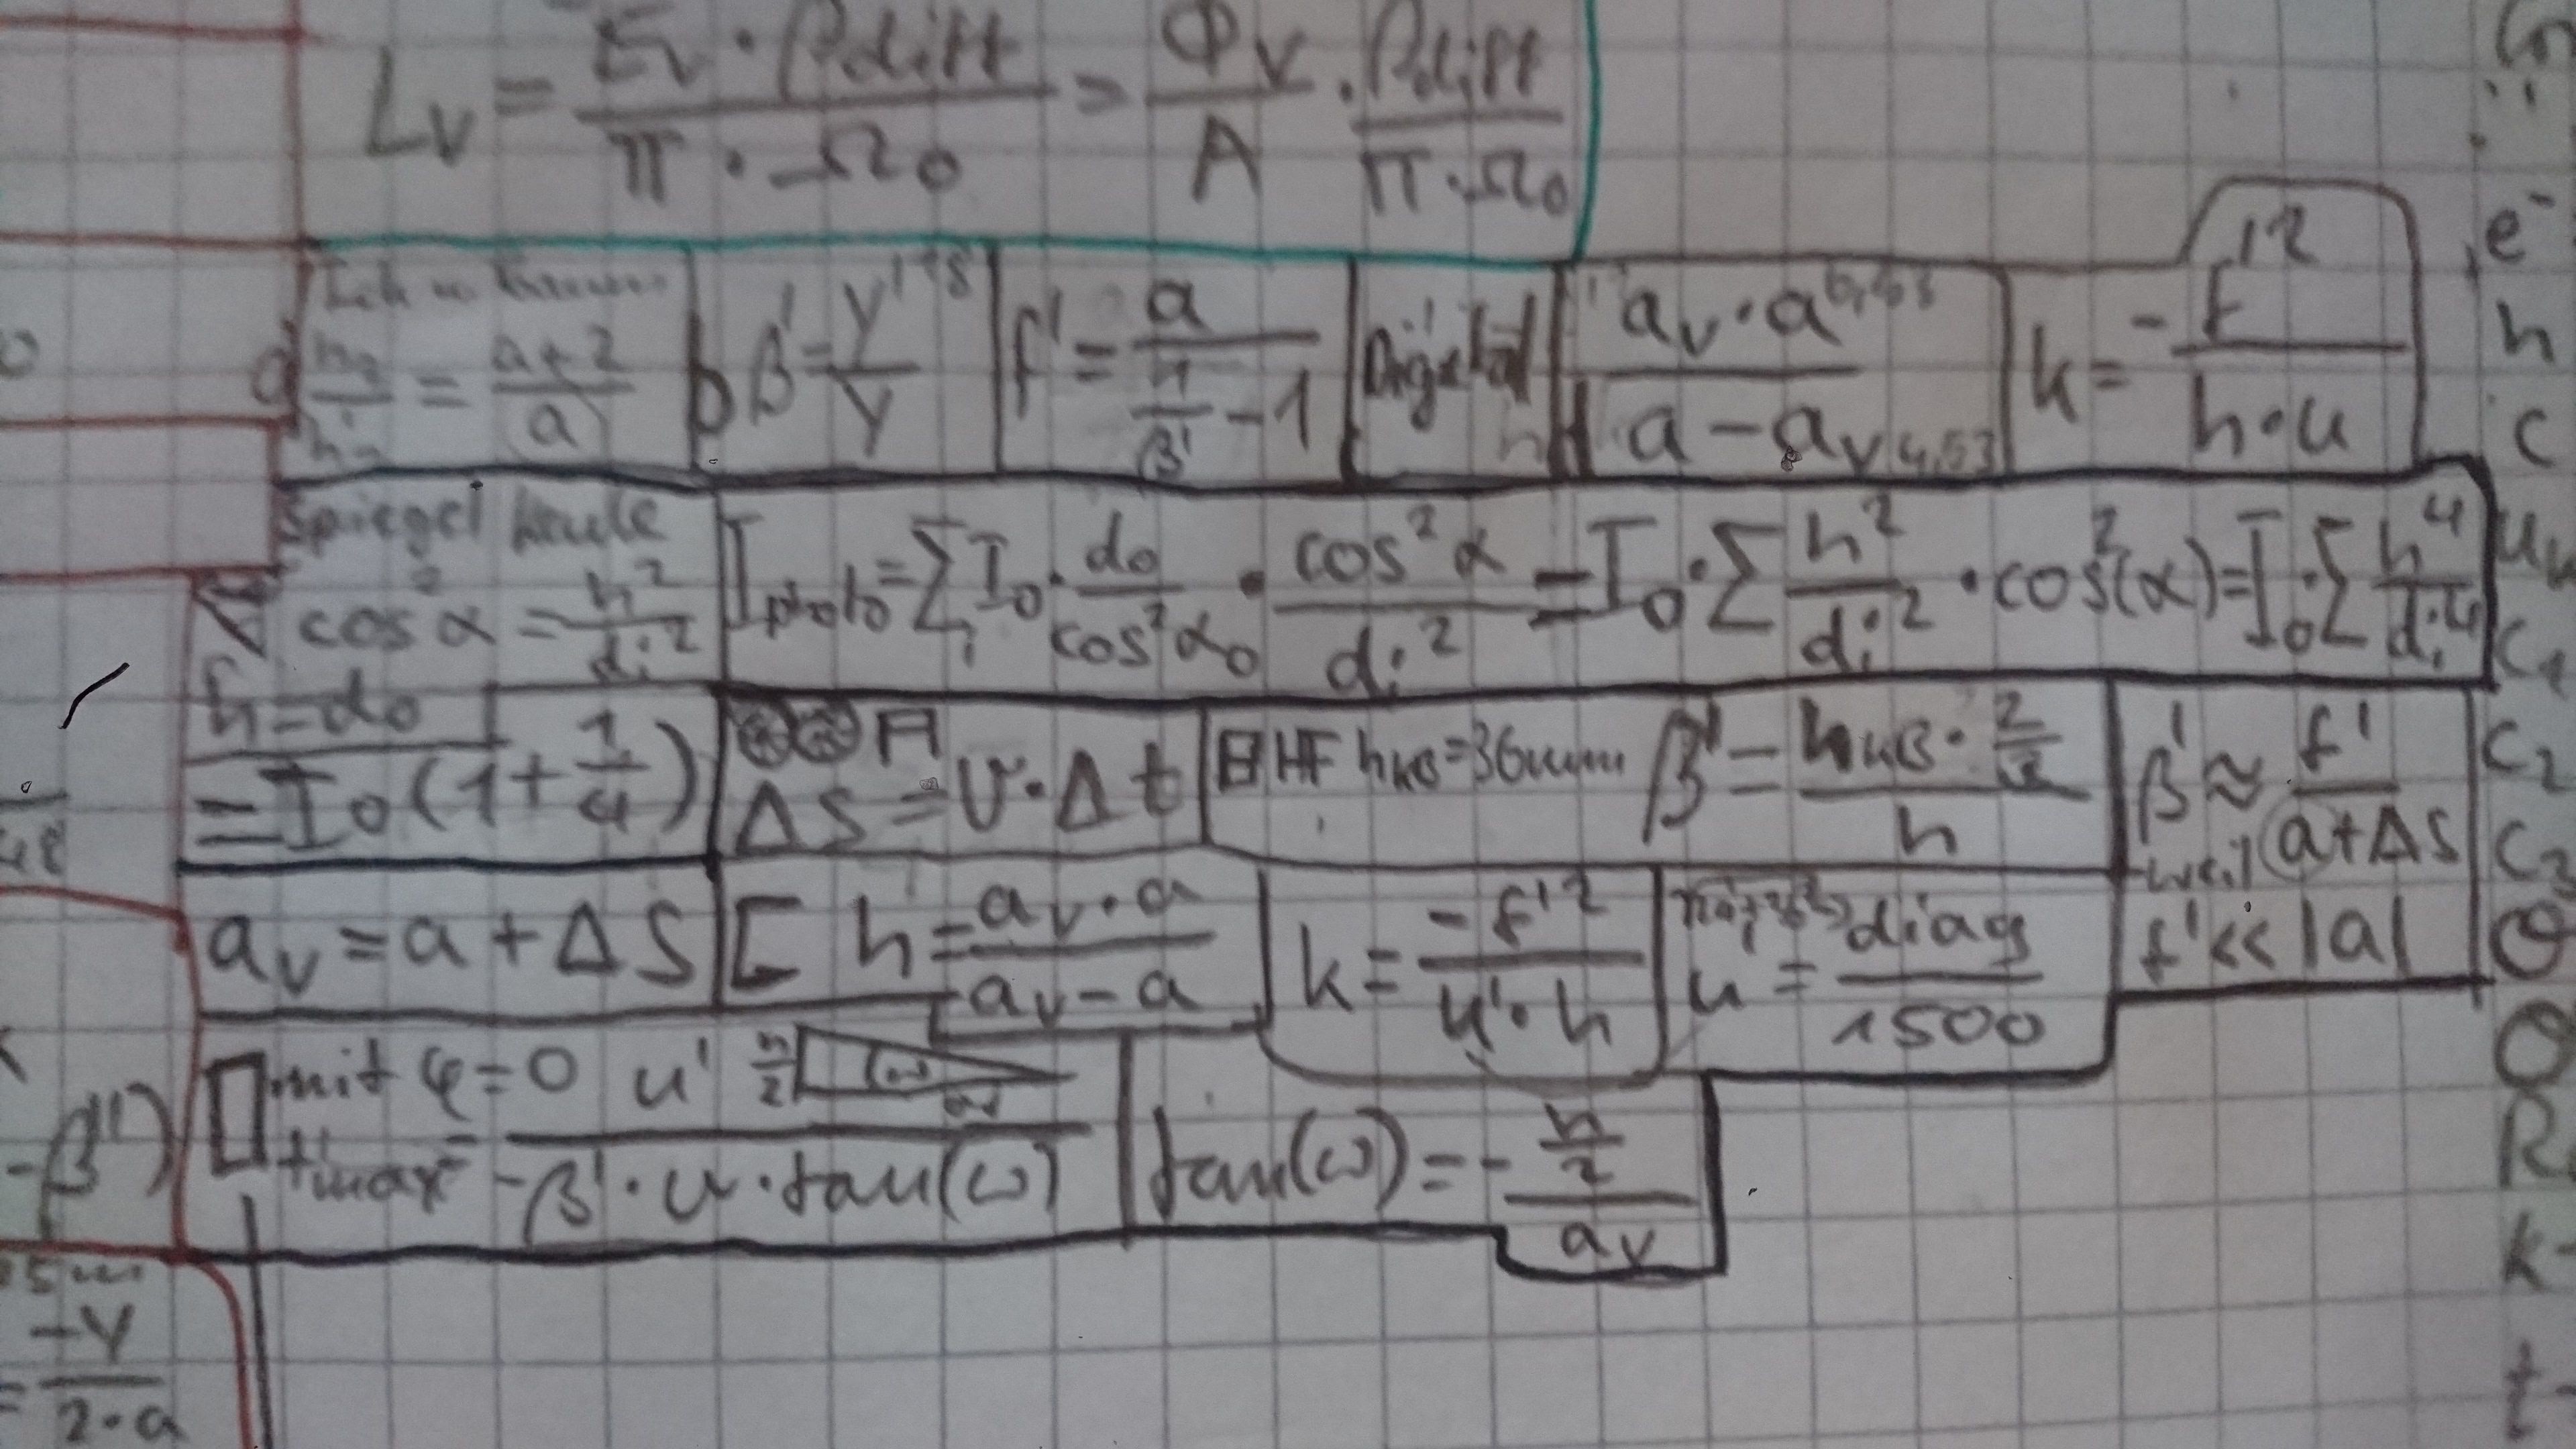 L_v = (E_v · ρdiff)/(π · Ω0) = Φv/A · ρdiff/(π · Ω0)
a) = (a+2)/a
b) β' = y'/y
f' = a/(1/β' - 1)
Digital h
(a_v · a)/(a - a_v)
k = -f'²/(h · u)
Spiegel
cos²α = h²/di²
I_photo = Σ_i I0 · d0/cos²α0 · cos²α/di² = I0 · Σ h²/di² · cos²(α) = I0 · Σ h⁴/di⁴
h = d0
= I0 (1 + 1/4)
A
ΔS = v · Δt
HF h_KB = 36mm β' = (h_KB · 2/3)/h
β' ≈ f'/(a + ΔS)
f' << |a|
a_v = a + ΔS
h = (a_v · a)/(a_v - a)
k = -f'²/(u' · h)
u' = diag/1500
mit φ = 0
t_max = u'/(-β' · v · tan(ω))
h/2
tan(ω) = -(h/2)/a_v
-β')
-y
= 2 · a
e⁻
h
c
c1
c2
c3
k
t